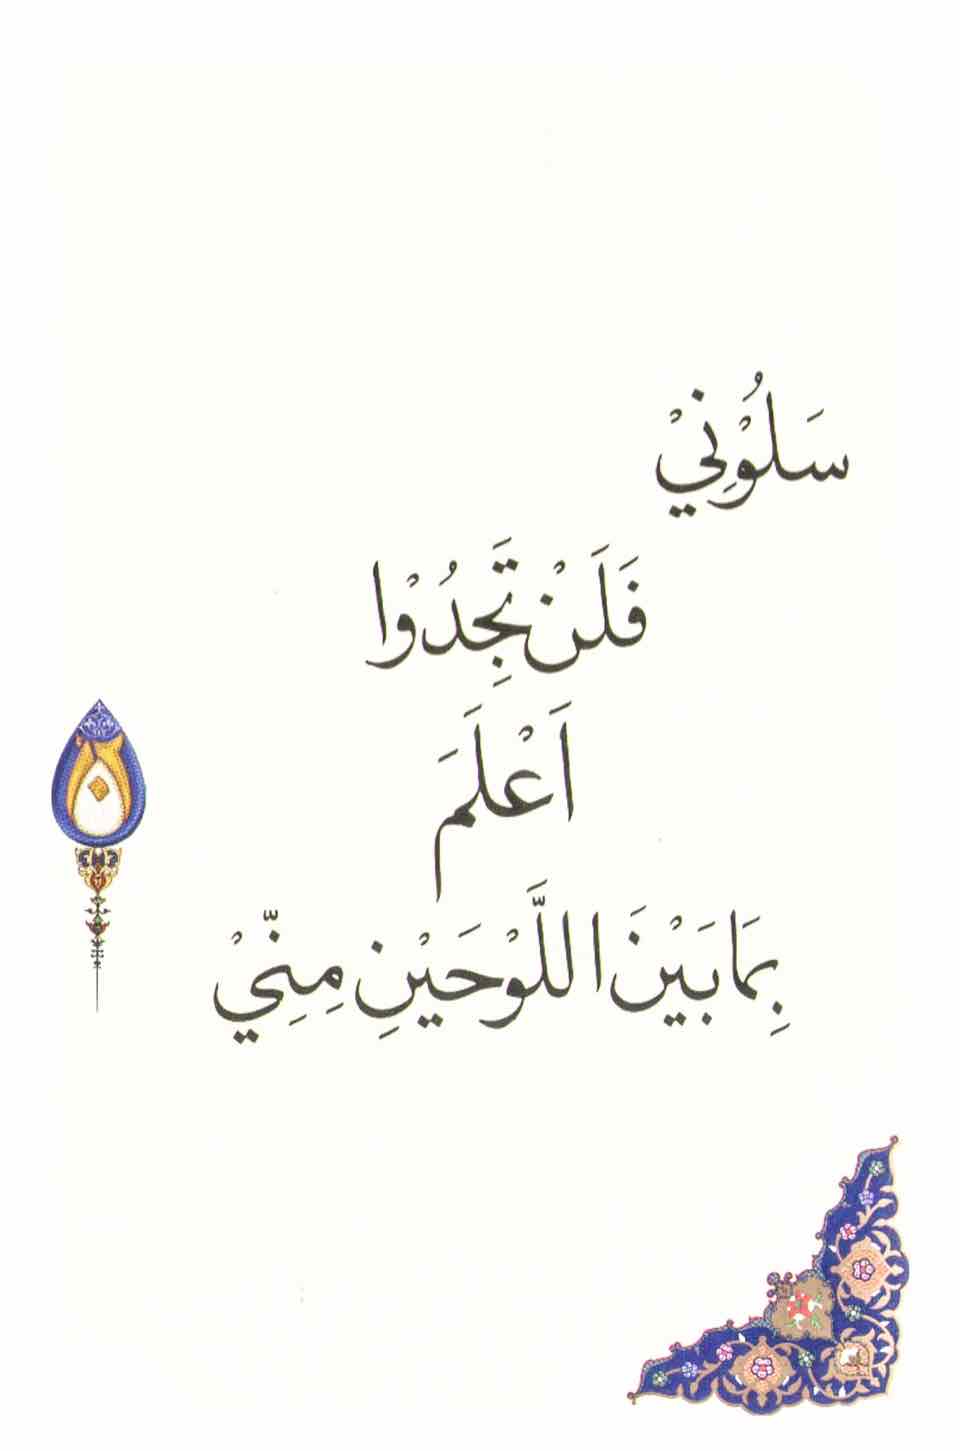 سَلُوْنِيْ
فَلَنْ تَجِدُوْا
اَعْلَمَ
بِمَا بَيْنَ اللَّوْحَيْنِ مِنِّيْ